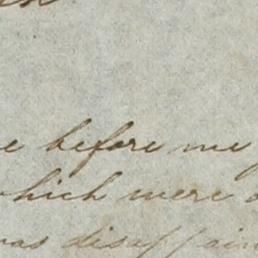 before me
which were
was disappoin